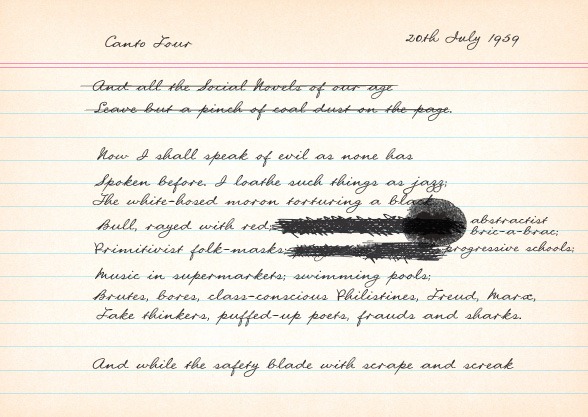 Canto Four
20th July 1959
And all the Social Novels of our age
Leave but a pinch of coal dust on the page.
Now I shall speak of evil as none has
Spoken before. I loathe such things as jazz;
The white-hosed moron torturing a black
Bull, rayed with red; abstractist
bric-a-brac;
Primitivist folk-masks; progressive schools;
Music in supermarkets; swimming pools;
Brutes, bores, class-conscious Philistines, Freud, Marx,
Fake thinkers, puffed-up poets, frauds and sharks.
And while the safety blade with scrape and screak